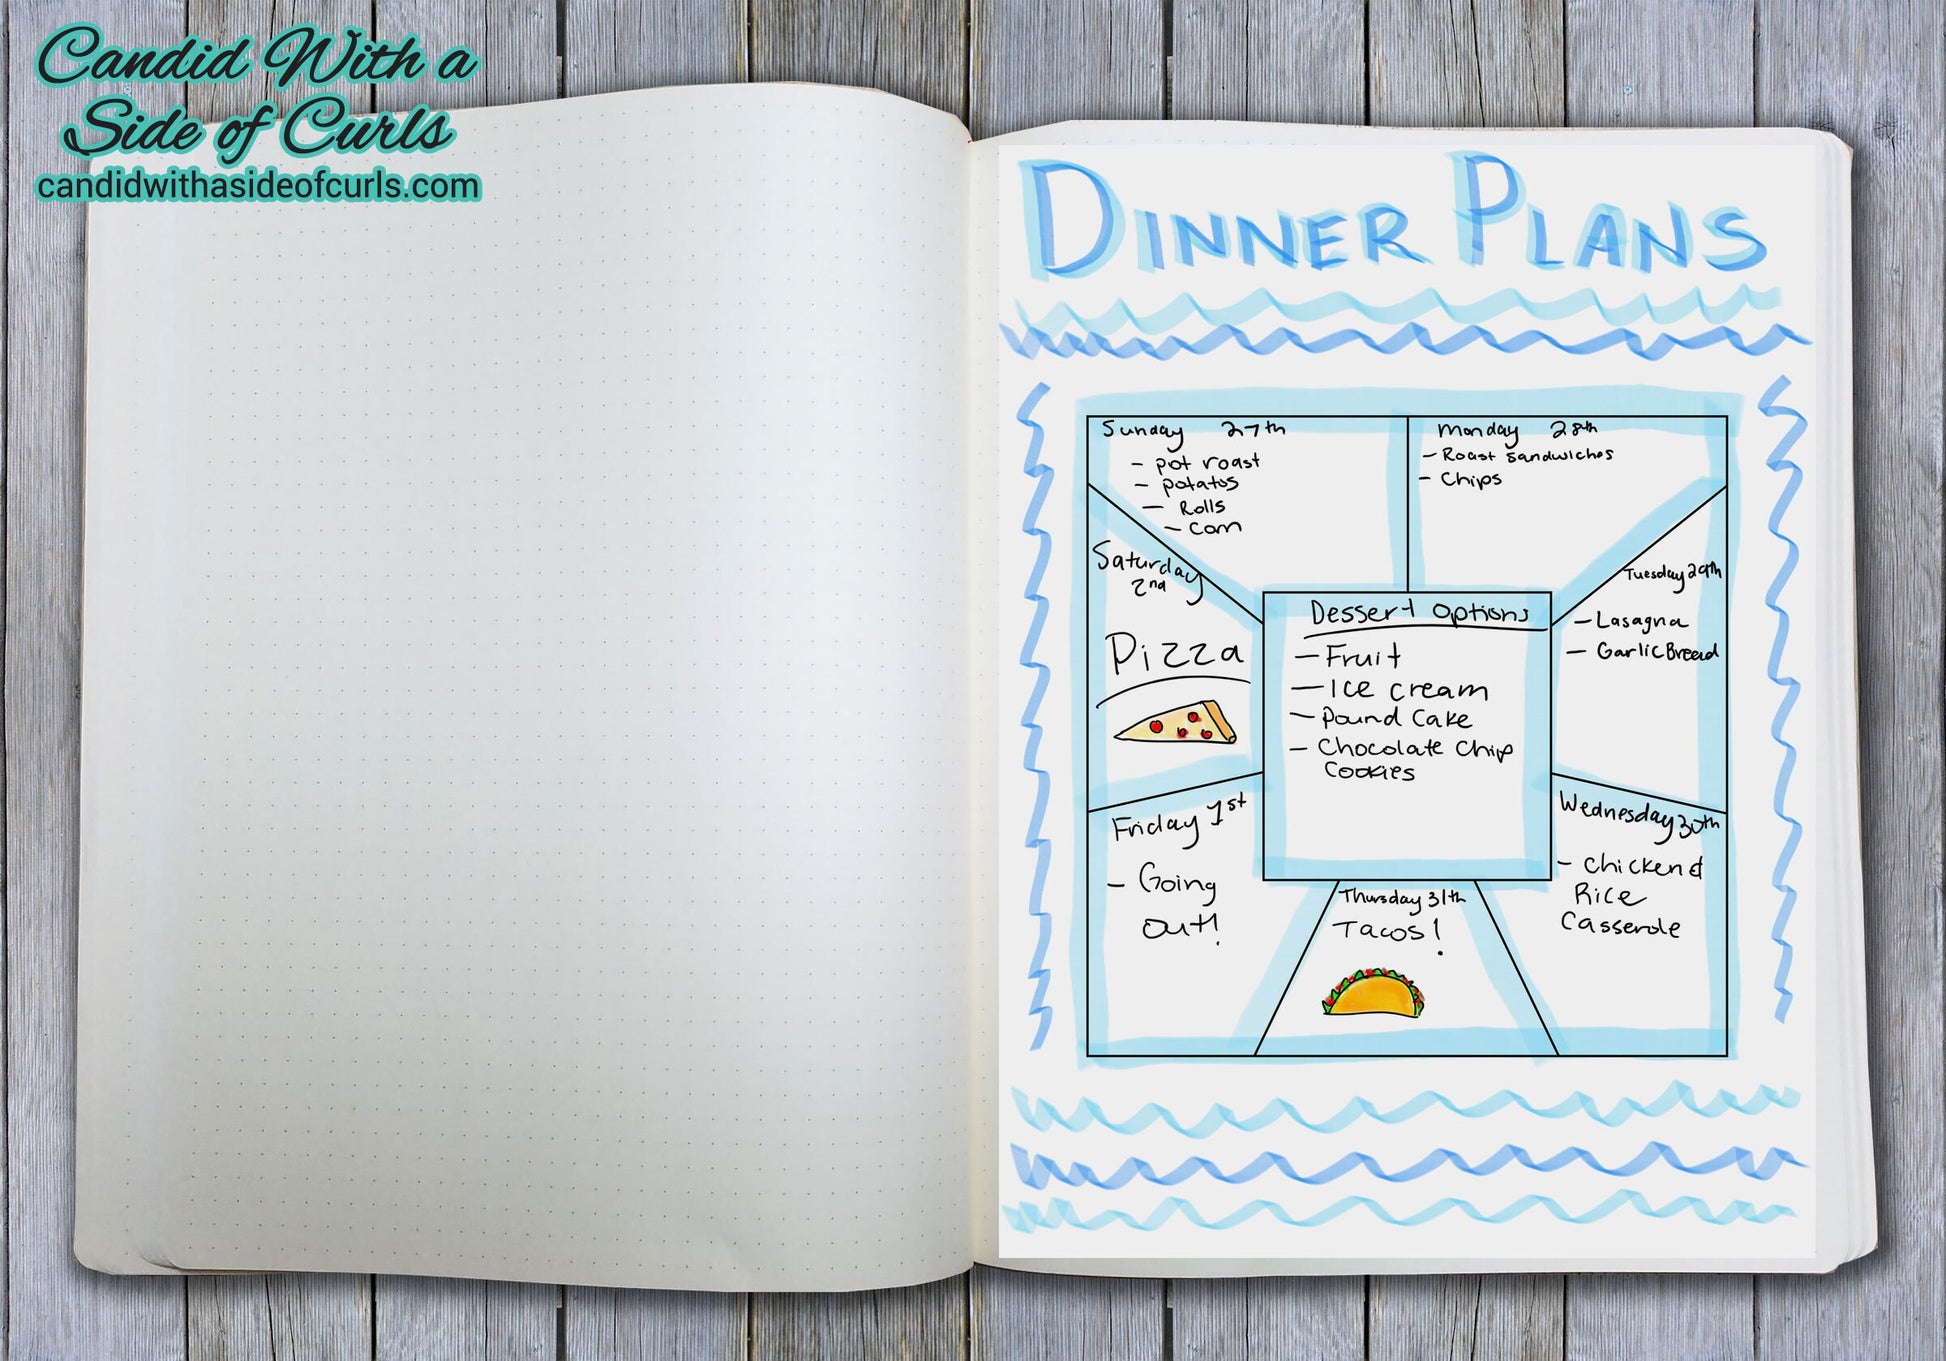 Candid With a
Side of Curls
candidwithasideofcurls.com
DINNER PLANS
Sunday 27th
- pot roast
- potatos
- Rolls
- Corn
Monday 28th
- Roast Sandwiches
- Chips
Tuesday 29th
- Lasagna
- Garlic Bread
Wednesday 30th
- Chicken &
Rice
Casserole
Thursday 31th
Tacos!
Friday 1st
- Going
out!
Saturday
2nd
Pizza
Dessert Options
- Fruit
- Ice cream
- Pound Cake
- Chocolate Chip
Cookies